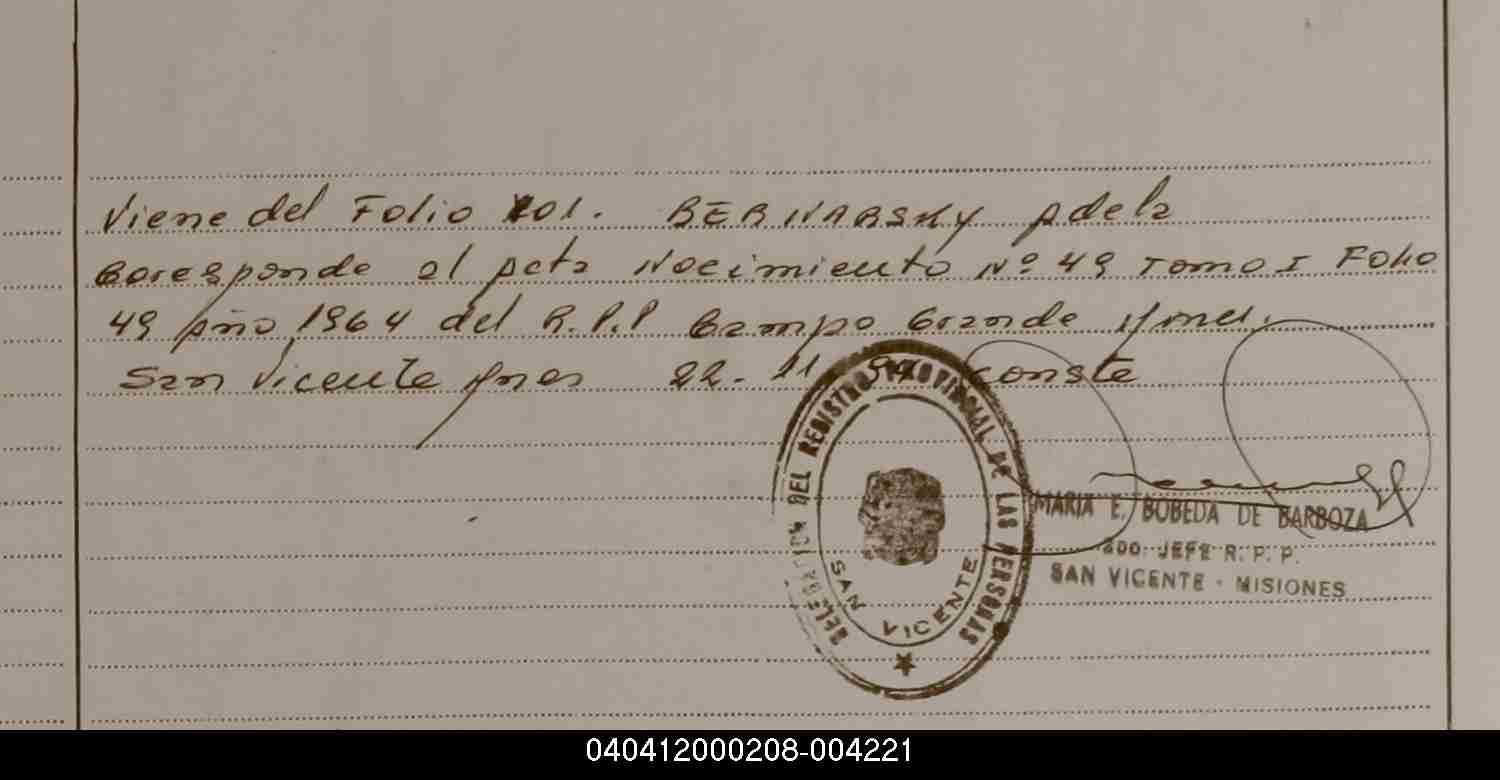 Viene del Folio 101. BERNARSKY Adela
Coresponde al Acta Nacimiento Nº 49 Tomo I Folio
49 Año 1964 del R.P.P Campo Grande Mnes.
San Vicente Mnes 22-11 conste
DELEGACION DEL REGISTRO PROVINCIAL DE LAS PERSONAS
SAN VICENTE
MARIA E. BOBEDA DE BARBOZA
JEFE R. P. P.
SAN VICENTE - MISIONES
040412000208-004221